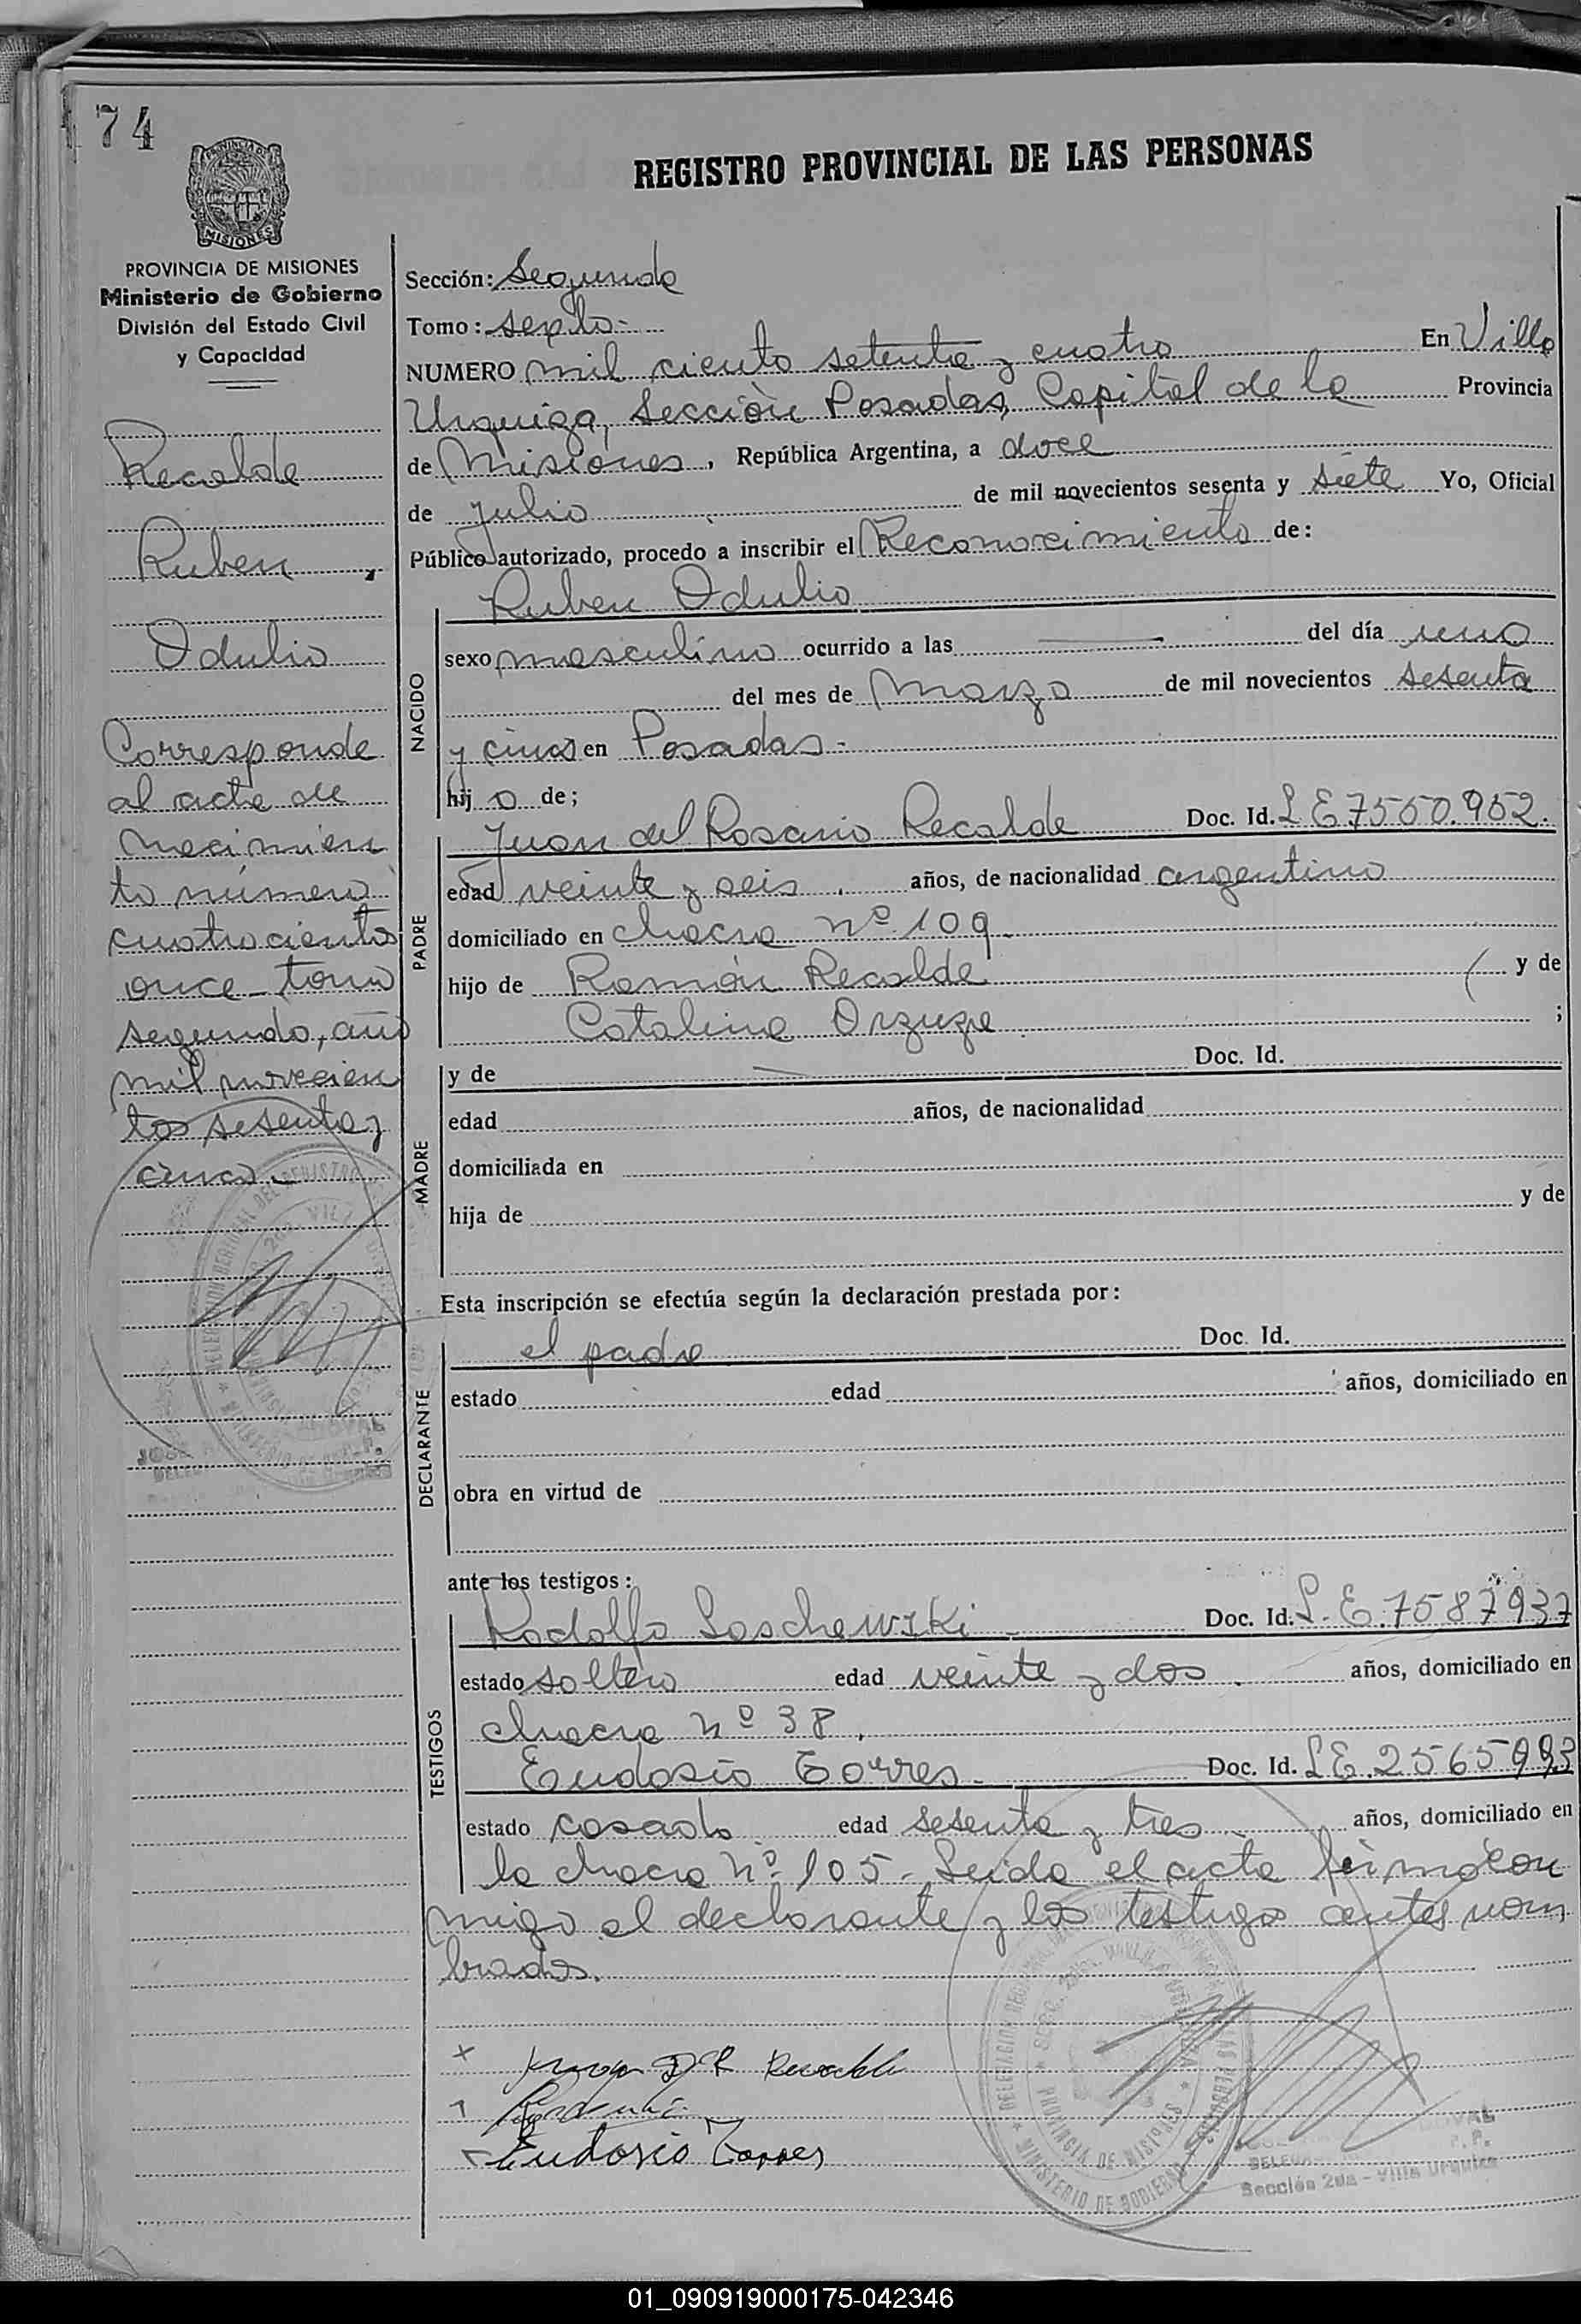 74
PROVINCIA DE
MISIONES
REGISTRO PROVINCIAL DE LAS PERSONAS
PROVINCIA DE MISIONES
Ministerio de Gobierno
División del Estado Civil
y Capacidad
Recalde
Ruben
Odulio
Corresponde
al acta de
nacimien
to número
cuatrocientos
once - tomo
segundo, año
mil novecien
tos sesenta y
cinco.-
Sección: Segunda
Tomo: sexto-
NUMERO mil ciento setenta y cuatro En Villa
Urquiza, Sección Posadas, Capital de la Provincia
de Misiones, República Argentina, a doce
de Julio de mil novecientos sesenta y siete Yo, Oficial
Público autorizado, procedo a inscribir el Reconocimiento de:
NACIDO
Ruben Odulio
sexo masculino ocurrido a las del día uno
del mes de Marzo de mil novecientos sesenta
y cinco en Posadas-
hijo de;
PADRE
Juan del Rosario Recalde Doc. Id. L E 7550.952.
edad veinte y seis. años, de nacionalidad argentino
domiciliado en chacra nº 109-
hijo de Ramón Recalde ( y de
Catalina ;
MADRE
y de Doc. Id.
edad años, de nacionalidad
domiciliada en
hija de y de
Esta inscripción se efectúa según la declaración prestada por:
DECLARANTE
el padre Doc. Id.
estado edad años, domiciliado en
obra en virtud de
ante los testigos:
TESTIGOS
Rodolfo Loschewski Doc. Id. L.E.7587937
estado soltero edad veinte y dos. años, domiciliado en
chacra nº 38.
Eudosio Torres- Doc. Id. LE.2565993
estado casado edad sesenta y tres años, domiciliado en
la chacra nº 105- Leida el acta firmó con
migo el declarante y los testigos antes nom
brados.
x Juan D R Recalde
Eudosio Torres
DELEGACION
MINISTERIO DE GOBIERNO
PROVINCIA DE MISIONES
Sección 2da - Villa Urquiza
01_090919000175-042346